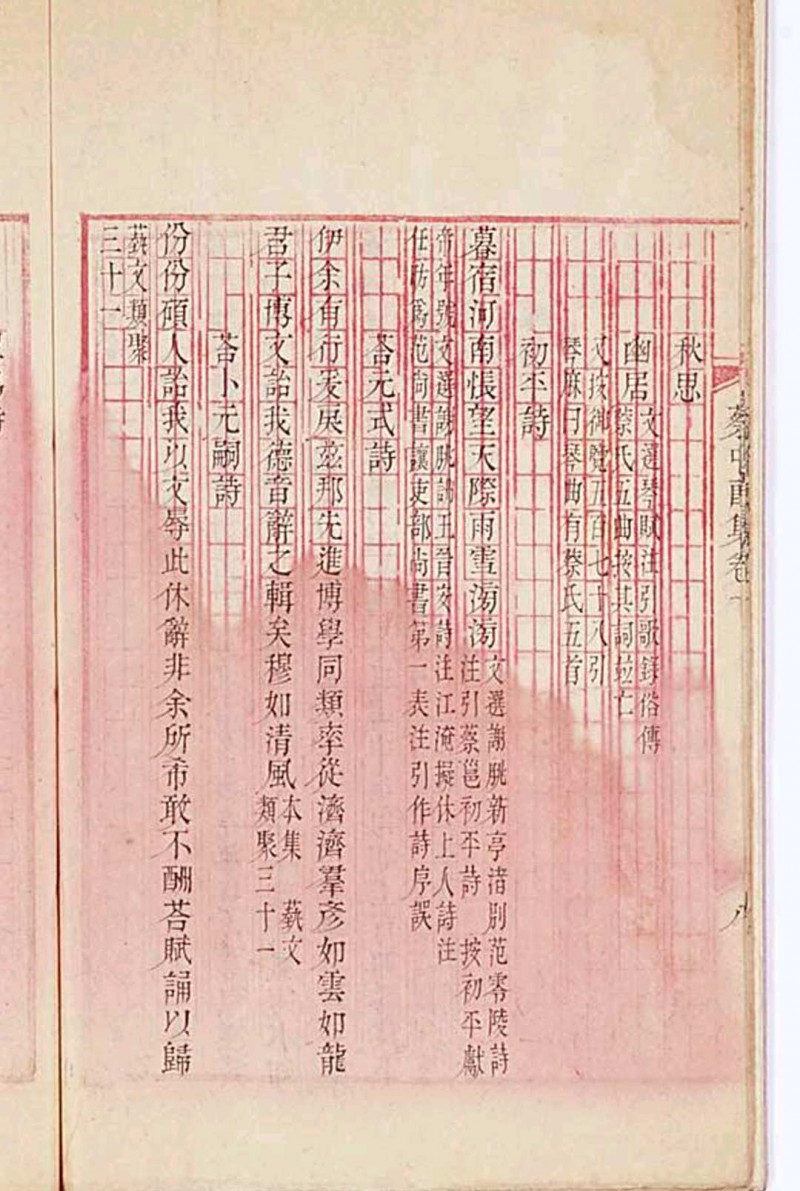 蔡中郎集卷一
八
秋思
幽居
文選琴賦注引歌錄俗傳
蔡氏五曲按其詞竝亡
又按御覽五百七十八引
琴厤曰琴曲有蔡氏五首
初平詩
暮宿河南悵望天際雨雪滂滂
文選謝朓新亭渚別范零陵詩
注引蔡邕初平詩 按初平獻
帝年號文選謝朓詩五晉安詩注江淹擬休上人詩注
任昉爲范尚書讓吏部尚書第一表注引作詩序誤
荅元式詩
伊余有行爰戾茲邦先進博學同類率從濟濟羣彥如雲如龍
君子博文詒我德音辭之輯矣穆如清風
本集 蓺文
類聚三十一
荅卜元嗣詩
份份碩人詒我以文辱此休辭非余所希敢不酬荅賦誦以歸
蓺文類聚
三十一